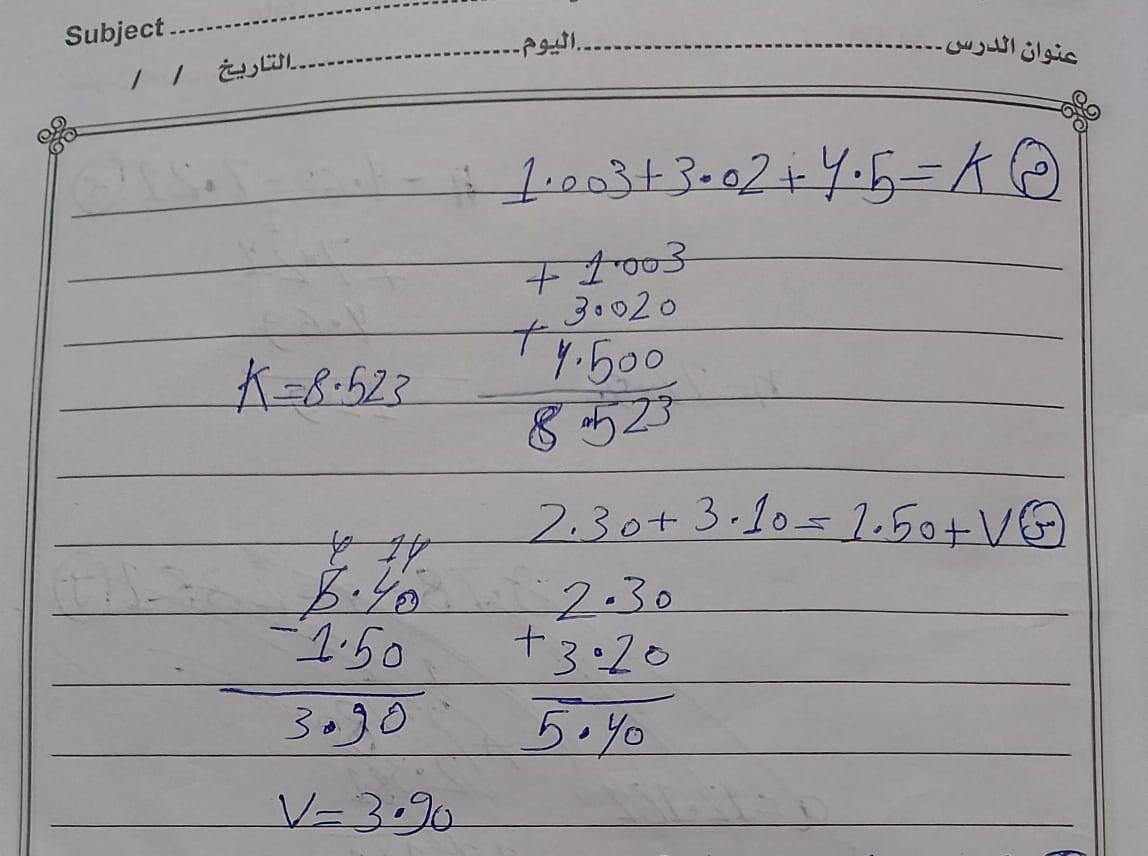 Subject
عنوان الدرس اليوم التاريخ / /
1.003+3.02+4.5=K م
+ 1.003
3.020
+ 4.500
8.523
K=8.523
2.30+3.10=1.50+V
2.30
+3.10
5.40
4 14
5.40
-1.50
3.90
V=3.90